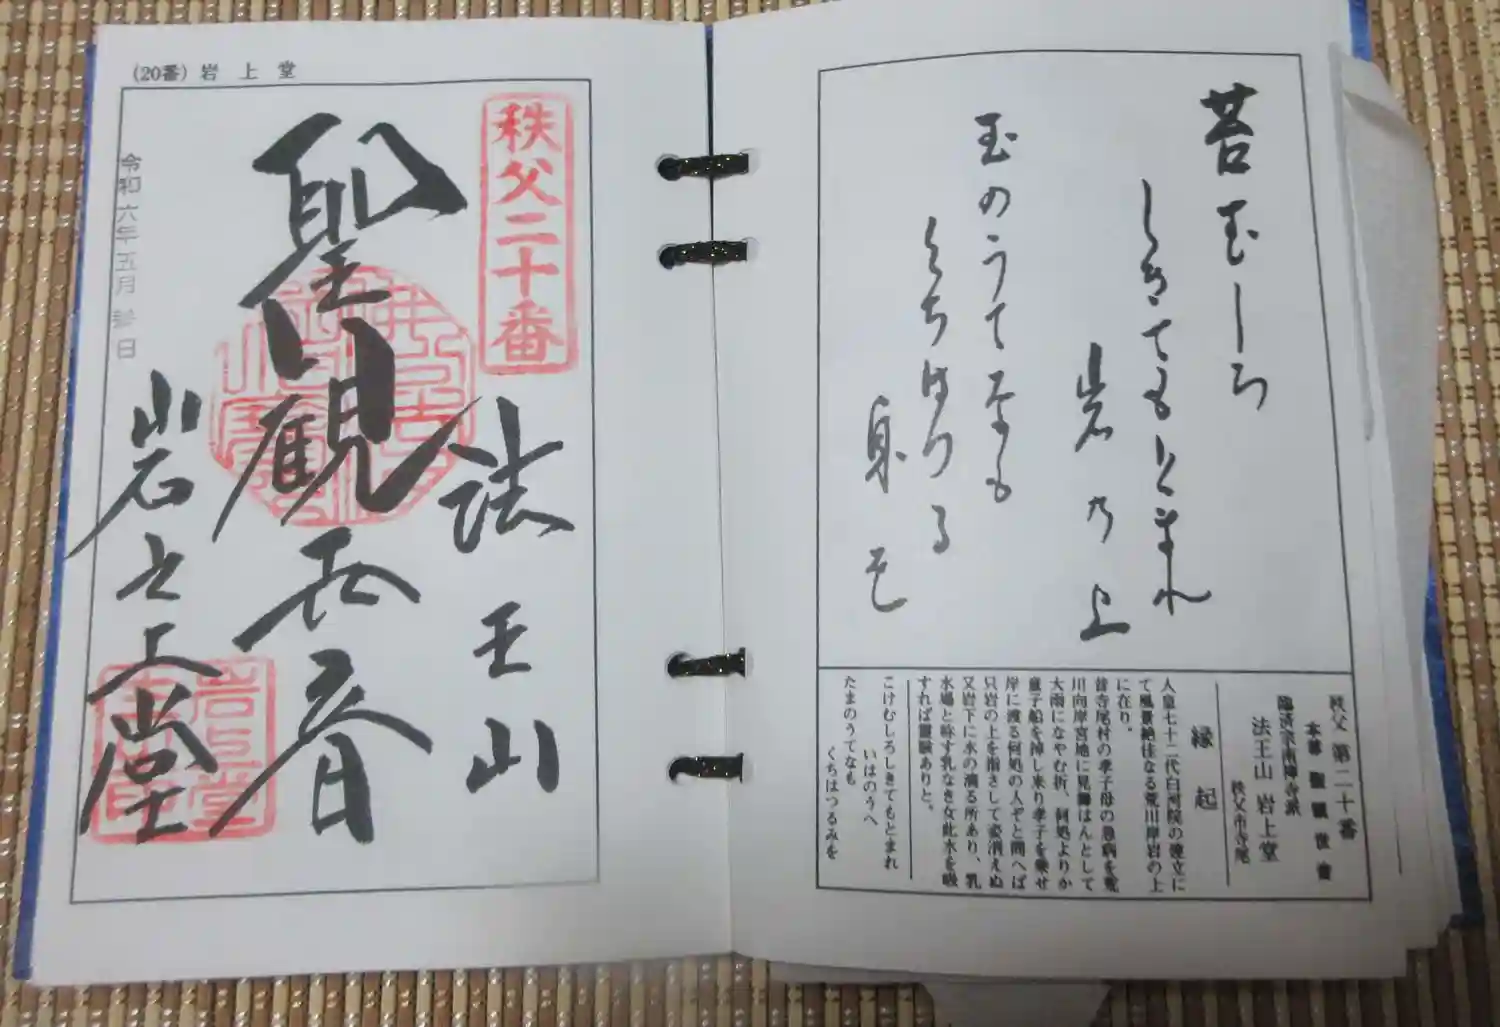 苔むしろ
しきてもとまれ
岩の上
玉のうてなも
くちはつる
身を
秩父 第二十番
本尊 聖観世音
臨済宗南禅寺派
法王山 岩上堂
秩父市寺尾
縁起
人皇七十二代白河院の建立に
て風景絶佳なる荒川岸岩の上
に在り。
昔寺尾村の孝子母の急病を荒
川向岸宮地に見舞はんとして
大雨になやむ折、何処よりか
童子船を掉し来り孝子を乗せ
岸に渡る何処の人ぞと問へば
只岩の上を指さして姿消えぬ
又岩下に水の滴る所あり、乳
水場と称す乳なき女此水を吸
すれば霊験ありと。
こけむしろしきてもとまれ
いはのうへ
たまのうてなも
くちはつるみを
(20番) 岩上堂
秩父二十番
法王山
聖観世音
岩之上堂
令和六年五月 日